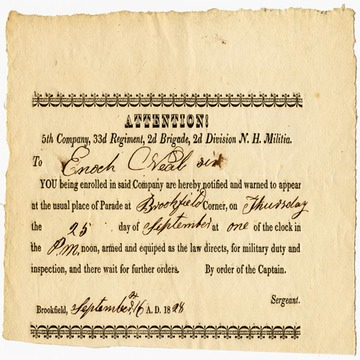 ATTENTION!
5th Company, 33d Regiment, 2d Brigade, 2d Division N. H. Militia.
To Enoch Neal
YOU being enrolled in said Company are hereby notified and warned to appear
at the usual place of Parade at Brookfield Corner, on Thursday
the 25 day of September at one of the clock in
the P.M. noon, armed and equiped as the law directs, for military duty and
inspection, and there wait for further orders. By order of the Captain.
Sergeant.
Brookfield, September A. D. 1828